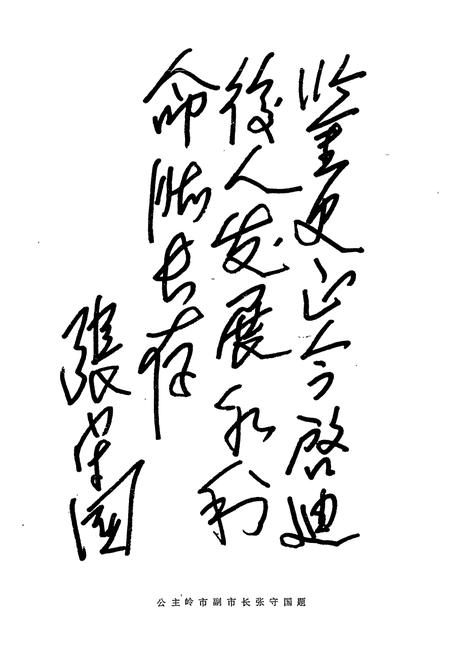 鉴史证今啓迪
後人发展水利
命脉长存
張守国
公主岭市副市长张守国题